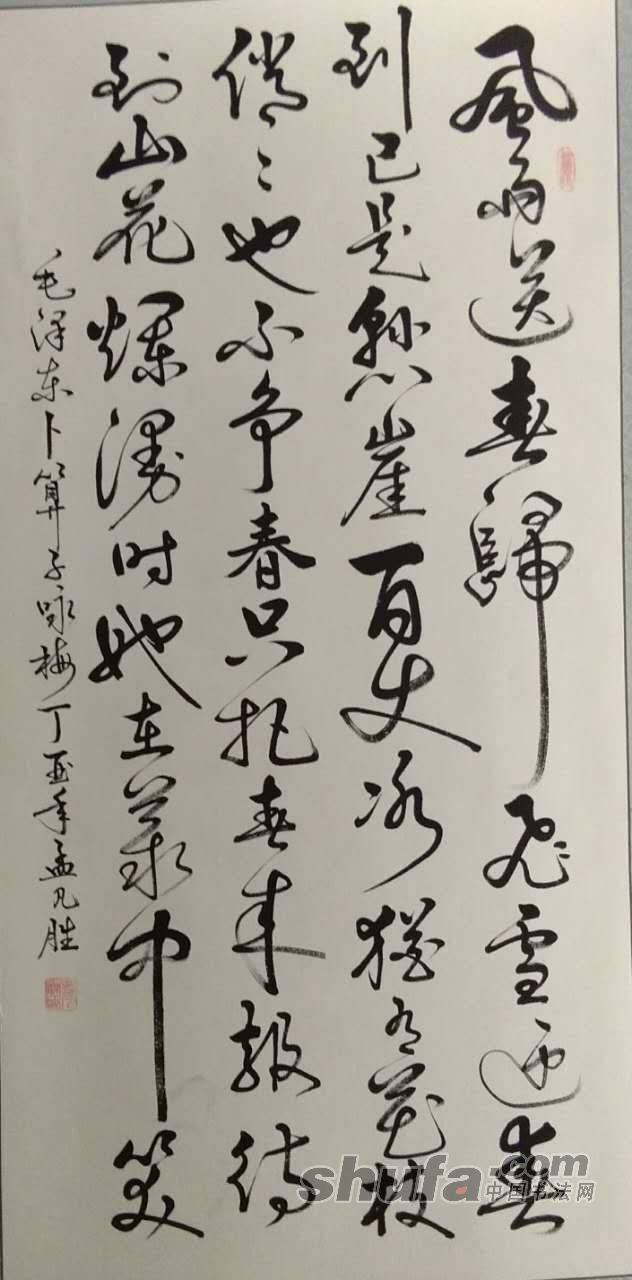 風雨送春歸飛雪迎春
到已是懸崖百丈冰猶有花枝
俏〻也不争春只把春来報待
到山花爛漫时她在叢中笑
毛泽东卜算子咏梅丁酉年孟凡胜
shufa.com
中国书法网